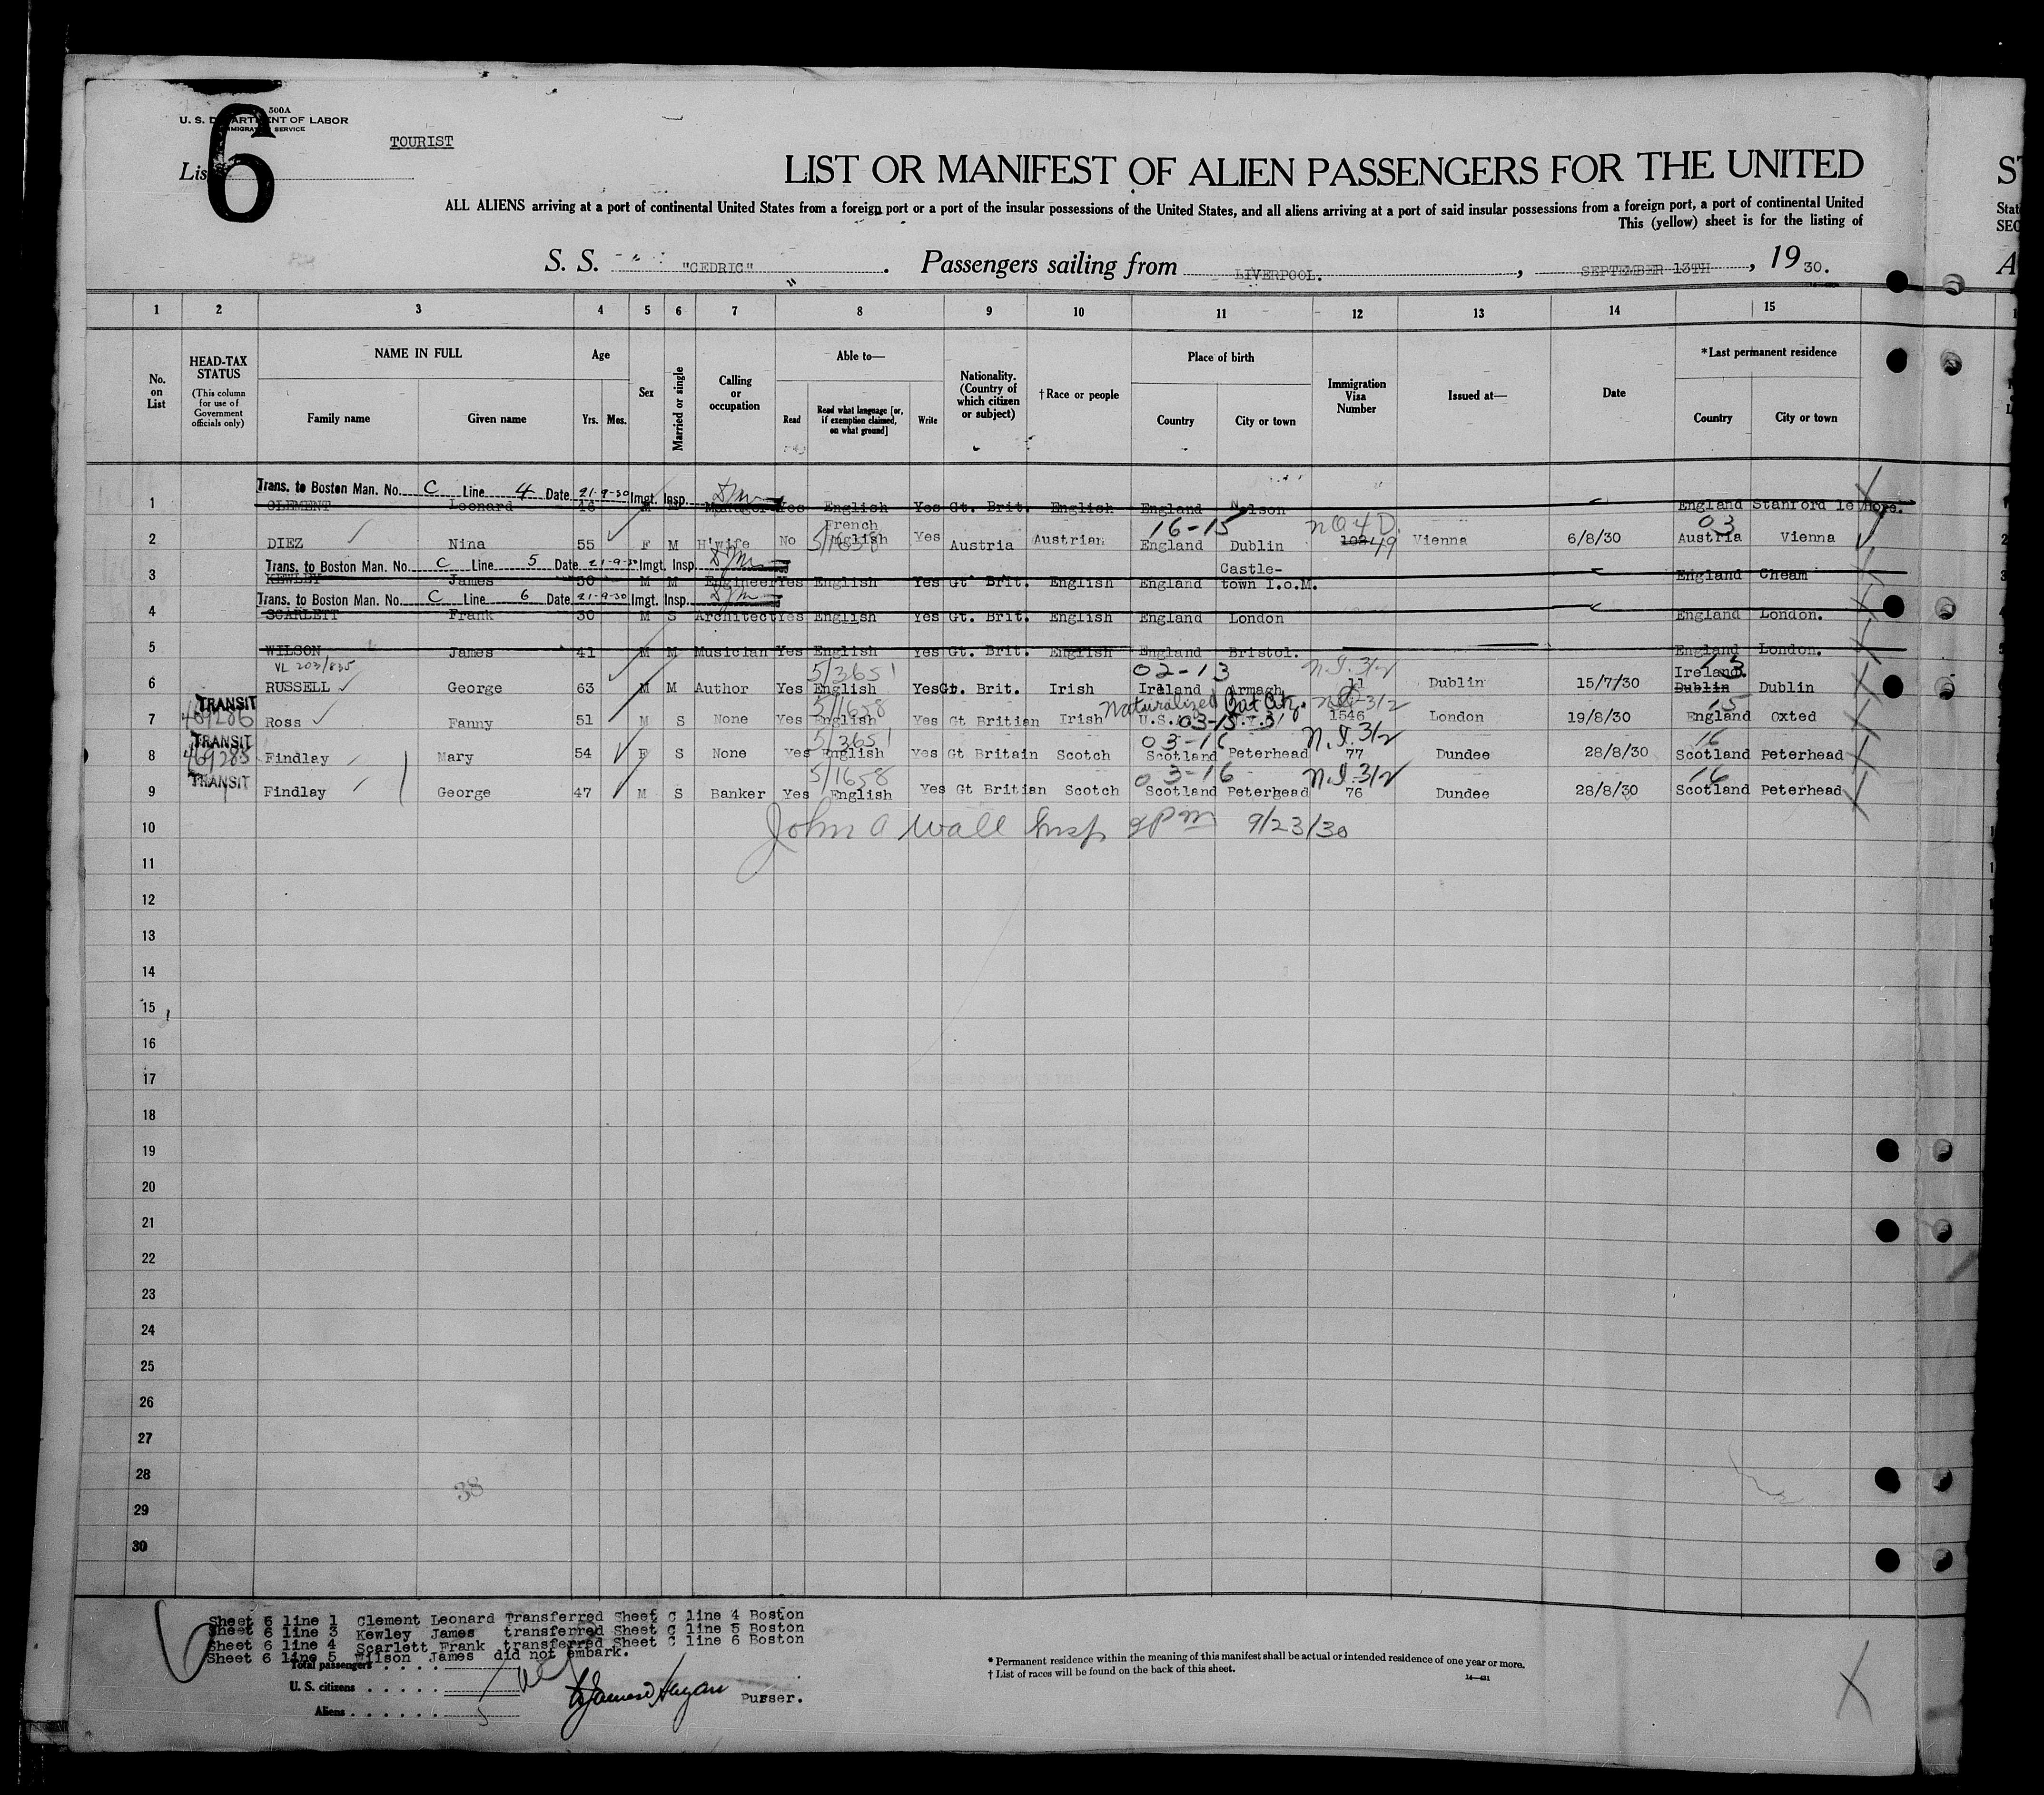 500A
U. S. DEPARTMENT OF LABOR
IMMIGRATION SERVICE
TOURIST
List 6
LIST OR MANIFEST OF ALIEN PASSENGERS FOR THE UNITED
ALL ALIENS arriving at a port of continental United States from a foreign port or a port of the insular possessions of the United States, and all aliens arriving at a port of said insular possessions from a foreign port, a port of continental United
This (yellow) sheet is for the listing of
S. S. "CEDRIC" . Passengers sailing from LIVERPOOL. , SEPTEMBER 13TH , 19 30.
1 2 3 4 5 6 7 8 9 10 11 12 13 14 15
No. on List
HEAD-TAX STATUS
(This column for use of Government officials only)
NAME IN FULL
Family name
Given name
Age
Yrs. Mos.
Sex
Married or single
Calling or occupation
Able to—
Read
Read what language [or, if exemption claimed, on what ground]
Write
Nationality. (Country of which citizen or subject)
† Race or people
Place of birth
Country
City or town
Immigration Visa Number
Issued at—
Date
*Last permanent residence
Country
City or town
Trans. to Boston Man. No. C Line 4 Date 21-9-30 Imgt. Insp.
1 CLEMENT Leonard 46 M Manager Yes English Yes Gt. Brit. English England Nelson England Stanford le Hope.
French 16-15 NQ4D. 03
2 DIEZ Nina 55 F M H'wife No English 5/1658 Yes Austria Austrian England Dublin 49 Vienna 6/8/30 Austria Vienna
Trans. to Boston Man. No. C Line 5 Date 21-9-30 Imgt. Insp.
3 KEWLEY James 30 M M Engineer Yes English Yes Gt Brit. English England Castle-town I.o.M. England Cheam
Trans. to Boston Man. No. C Line 6 Date 21-9-30 Imgt. Insp.
4 SCARLETT Frank 30 M S Architect Yes English Yes Gt. Brit. English England London England London.
5 WILSON James 41 M M Musician Yes English Yes Gt. Brit. English England Bristol. England London.
VL 203/835 5/3651 02-13 N.I. 3/2 Ireland. 13
6 RUSSELL George 63 M M Author Yes English Yes Gt. Brit. Irish Ireland Armagh 11 Dublin 15/7/30 Dublin Dublin
TRANSIT 469286 5/1658 Naturalized 3/2 15
7 Ross Fanny 51 M S None Yes English Yes Gt Britian Irish U.S. 03-15 N.Y. 1546 London 19/8/30 England Oxted
TRANSIT 469285 5/3651 03-16 N.I. 3/2 16
8 Findlay Mary 54 F S None Yes English Yes Gt Britain Scotch Scotland Peterhead 77 Dundee 28/8/30 Scotland Peterhead
TRANSIT 5/1658 03-16 N.I. 3/2 16
9 Findlay George 47 M S Banker Yes English Yes Gt Britian Scotch Scotland Peterhead 76 Dundee 28/8/30 Scotland Peterhead
10 John A Wall Insp 2 Pm 9/23/30
11
12
13
14
15
16
17
18
19
20
21
22
23
24
25
26
27
28
38
29
30
Sheet 6 line 1 Clement Leonard Transferred Sheet C line 4 Boston
Sheet 6 line 3 Kewley James transferred Sheet C line 5 Boston
Sheet 6 line 4 Scarlett Frank transferred Sheet C line 6 Boston
Sheet 6 line 5 Wilson James did not embark.
Total passengers . . . .
U. S. citizens . . . . .
Aliens . . . . . . 5
Purser.
* Permanent residence within the meaning of this manifest shall be actual or intended residence of one year or more.
† List of races will be found on the back of this sheet.